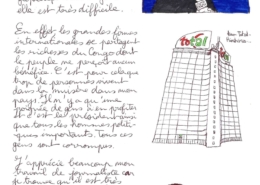 elle est très difficile.
En effet les grandes forces
internationales se partagent
les richesses du Congo dont
le peuple ne perçoit aucun
bénéfice. C'est pour cela que
trop de personnes vivent
dans la misère dans mon
pays. Il n'y a qu'une
poignée de gens à en profiter
et c'est le président ainsi
que tous les hommes politi-
ques importants. Tous ces
gens sont corrompus.
J'apprécie beaucoup mon
travail de journaliste
je trouve qu'il est très
total
Tour Total